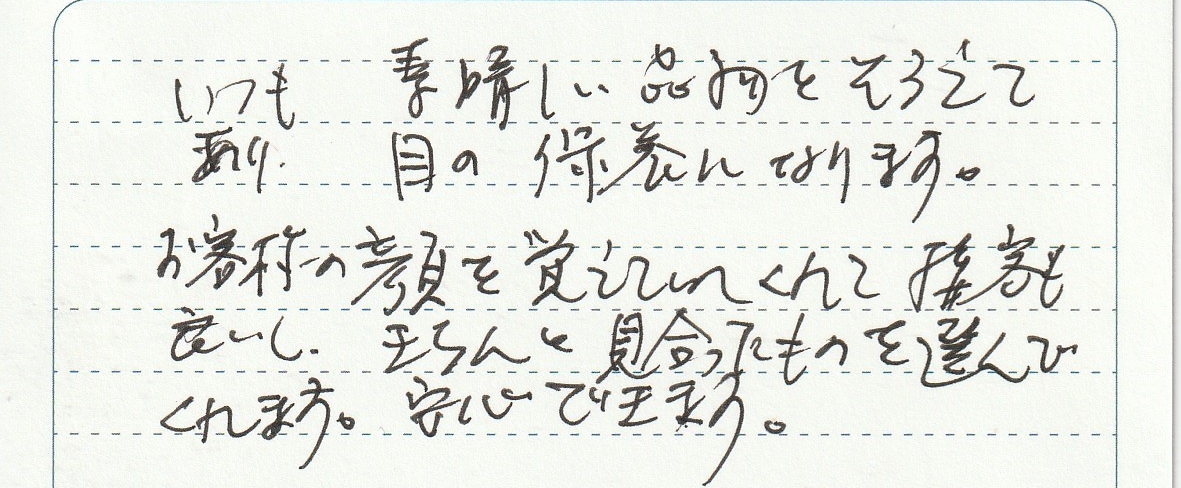 いつも 素晴しい品物をそろえて
あり、 目の保養になります。
お客様の顔を覚えていてくれて接客も
良いし、きちんと見合ったものを選んで
くれます。安心できます。